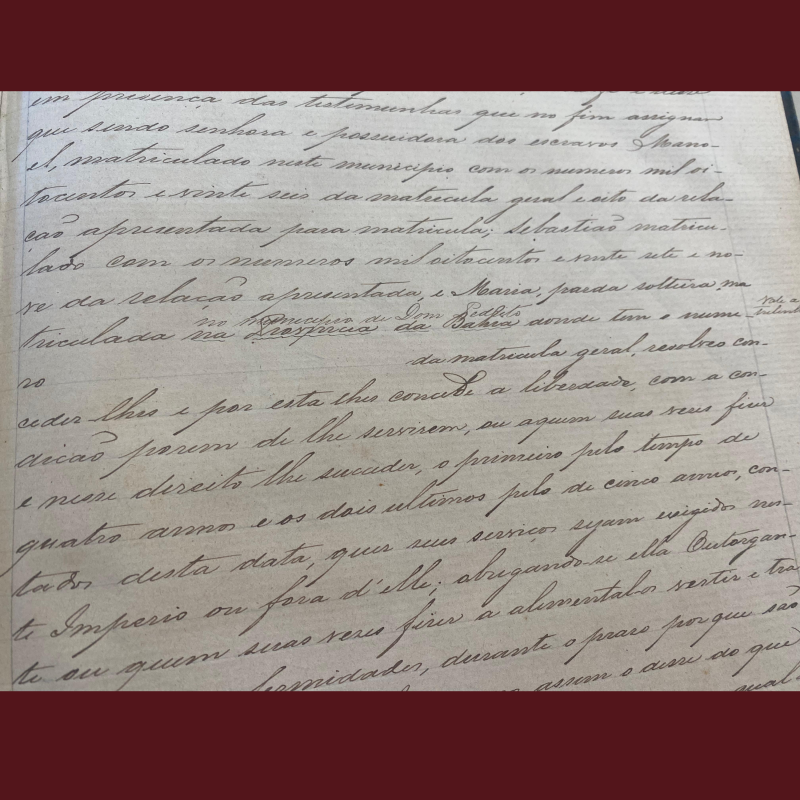 em presença das testemunhas que no fim assignam
que sendo senhora e possuidora dos escravos Mano-
el, matriculado neste municipio com os numeros mil oi-
tocentos e vinte seis da matricula geral e oito da rela-
ção apresentada para matricula; Sebastião matricu-
lado com os numeros mil oitocentos e vinte sete e no-
ve da relação apresentada, e Maria, parda solteira, ma
no municipio de Dom Pedrito
triculada na Provincia da Bahia donde tem o nume
Vale a
ro da matricula geral, resolveo con-
ceder-lhes e por esta lhes concede a liberdade, com a con-
dicão porem de lhe servirem, ou aquem suas vezes fizer
e nesse direito lhe succeder, o primeiro pelo tempo de
quatro annos e os dois ultimos pelo de cinco annos, con-
tados desta data, quer seus serviços sejam exigidos nes-
te Imperio ou fora d'elle; obrigando-se ella Outorgan-
te ou quem suas vezes fizer a alimental-os vestir e tra
fermidades, durante o praso porque são
assim o disse do que